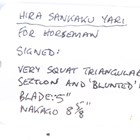 HIRA SANKAKU YARI
FOR HORSEMAN
SIGNED:
VERY SQUAT TRIANGULAR
SECTION AND 'BLUNTED'
BLADE: 5"
NAKAGO 8 5/8"